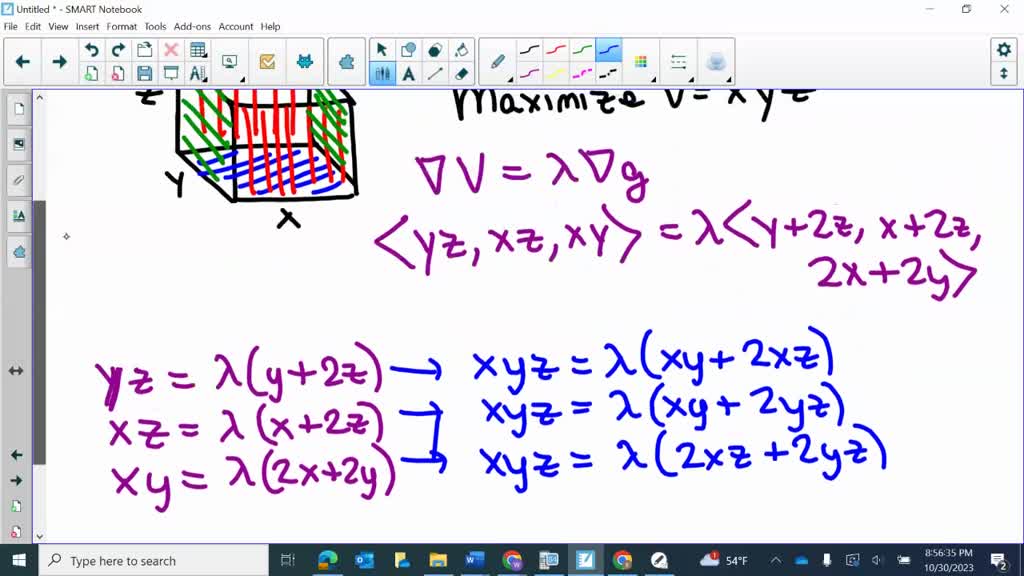 Untitled * - SMART Notebook
File Edit View Insert Format Tools Add-ons Account Help
z
Maximize V = xyz
Y
X
∇V = λ∇g
<yz, xz, xy> = λ<y+2z, x+2z,
2x+2y>
yz = λ(y+2z) → xyz = λ(xy+2xz)
xz = λ(x+2z) → xyz = λ(xy+2yz)
xy = λ(2x+2y) → xyz = λ(2xz+2yz)
Type here to search
54°F
8:56:35 PM
10/30/2023
2